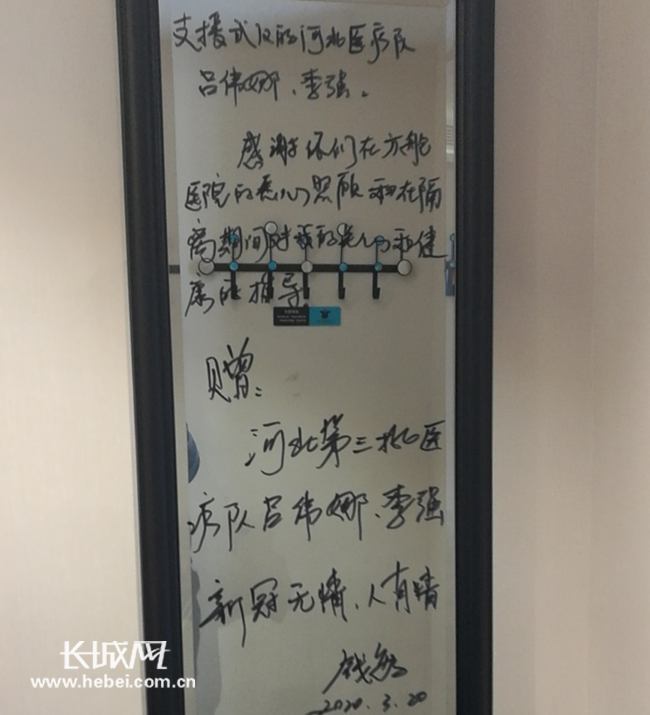 支援武汉的河北医疗队
吕伟娜、李强。
感谢你们在方舱
医院的悉心照顾和在隔
离期间对我的关心和健
康的指导
赠:
河北第三批医
疗队吕伟娜、李强
新冠无情、人有情
钱
2020.3.20
长城网
www.hebei.com.cn